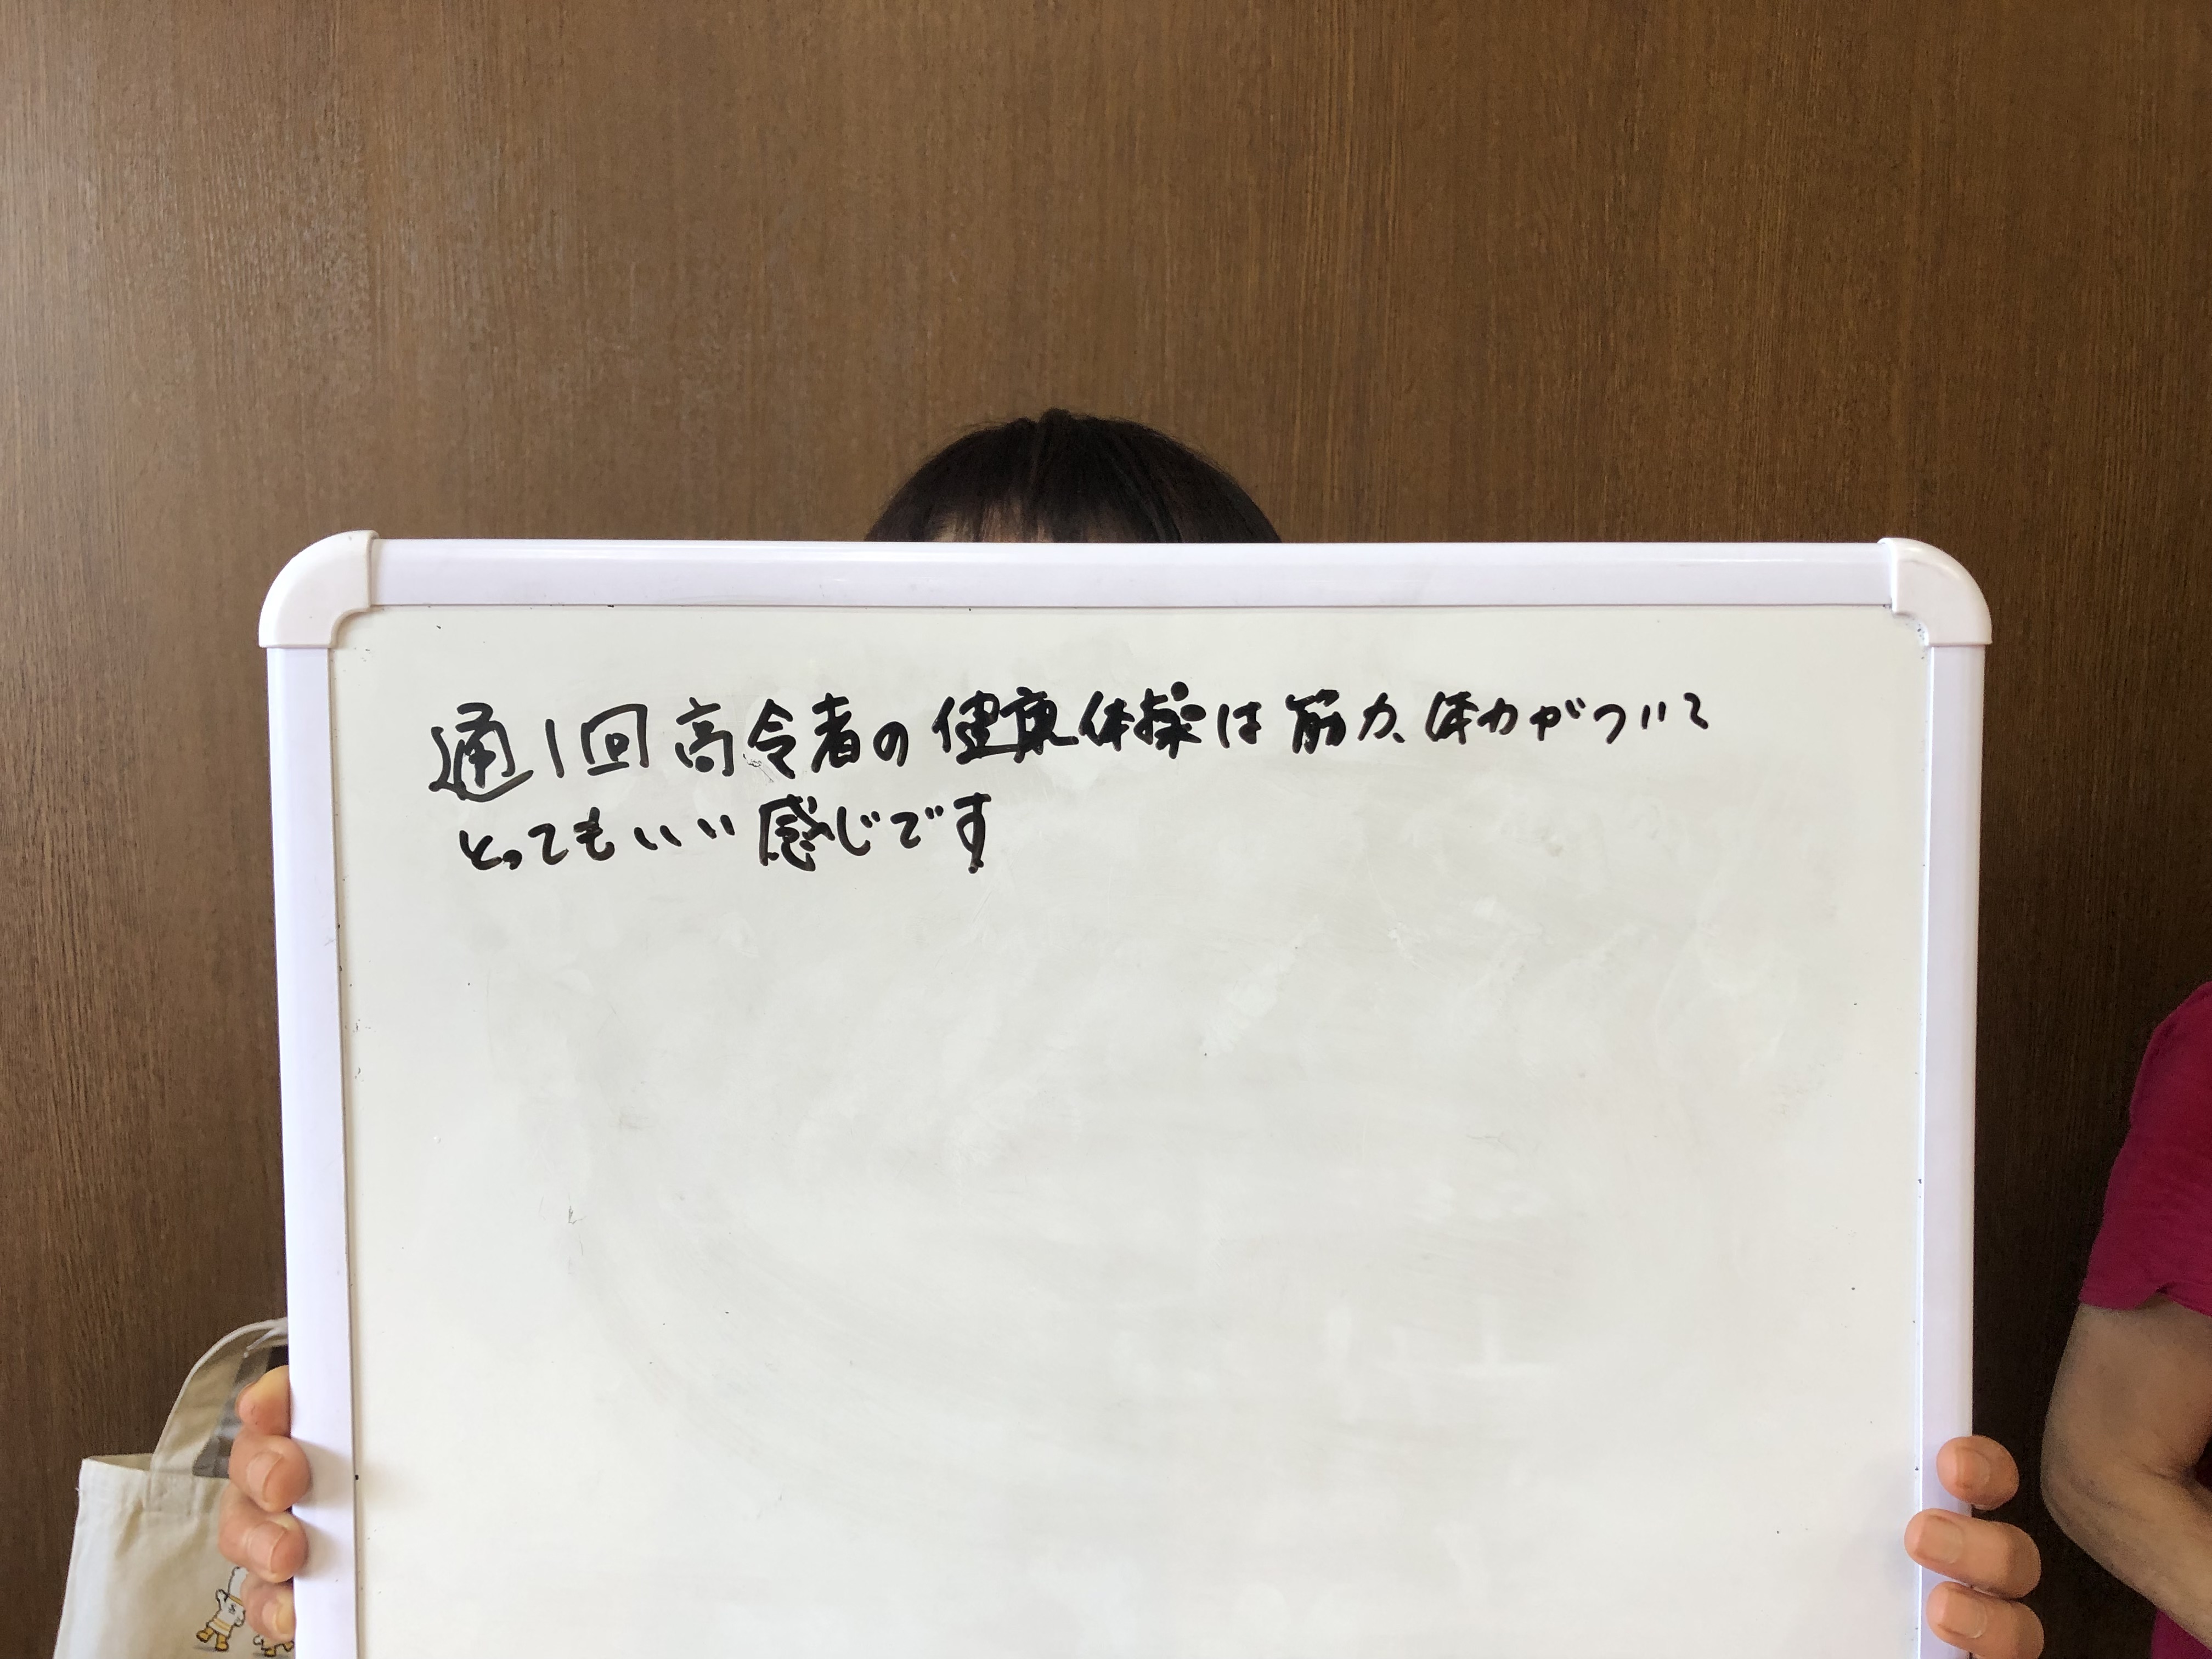 通1回高令者の健康体操は筋力、体力がついて
とってもいい感じです